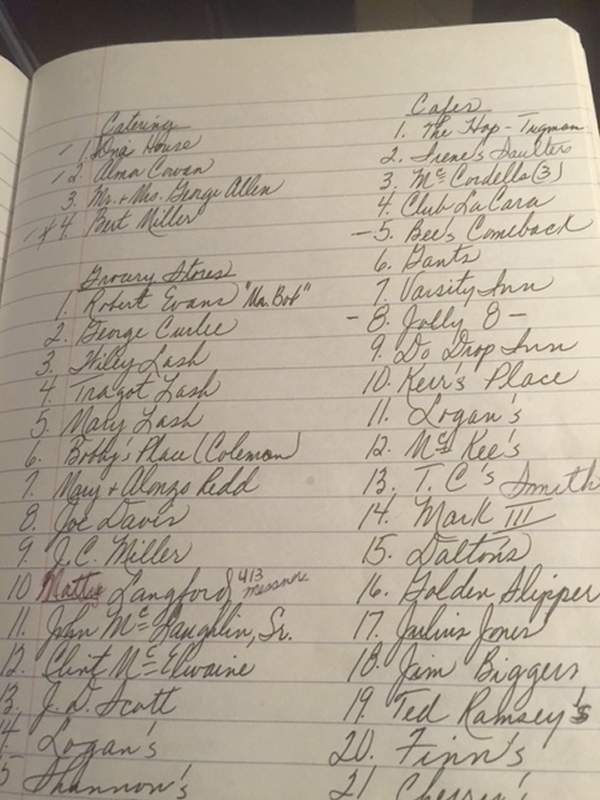 Catering
1. Ona House
2. Alma Cowan
3. Mr. + Mrs. George Allen
4. Bert Miller
Grocery Stores
1. Robert Evans "Mr. Bob"
2. George Curlee
3. Wiley Lash
4. Tragot Lash
5. Mary Lash
6. Bobby's Place (Coleman)
7. Mary + Alonzo Redd
8. Joe Davis
9. J.C. Miller
10 Langford 413
11. John McLaughlin, Sr.
12. Clint McElwaine
13. J.D. Scott
14. Logan's
15 Shannon's
Cafes
1. The Hop - Tugman
2. Irene's Saulters
3. McCordells (3)
4. Club LaCara
- 5. Bee's Comeback
6. Gants
7. Varsity Inn
- 8. Jolly 8 -
9. Do Drop Inn
10. Kerr's Place
11. Logan's
12. McKee's
13. T. C's Smith
14. Mark III
15. Daltons
16. Golden Slipper
17. Julius Jones
18. Jim Biggers
19. Ted Ramsey's
20. Finn's
21